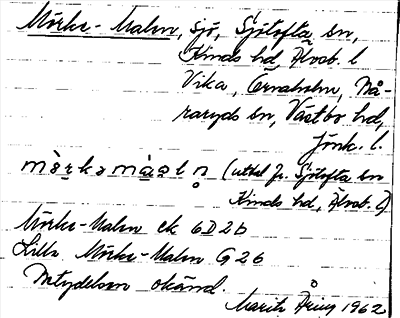 Mörke-Malen, sjö, Sjötofta sn,
Kinds hd, Älvsb. l
Vika, Örnaholm, Nå-
raryds sn, Västbo hd,
Jönk. l.
mö̀rkamàaln (uttal fr. Sjötofta sn
Kinds hd, Älvsb. l)
Mörke-Malen ek 6D2b
Lilla Mörke-Malen G26
Betydelsen okänd.
Marits 1962